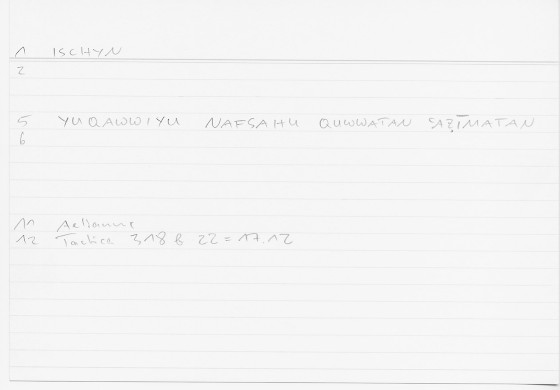 1 ISCHYN
2
5 YUQAWWIYU NAFSAHU QUWWATAN ʿAẒĪMATAN
6
11 Aelianus
12 Tactica 3.18 b 22 = 17.12